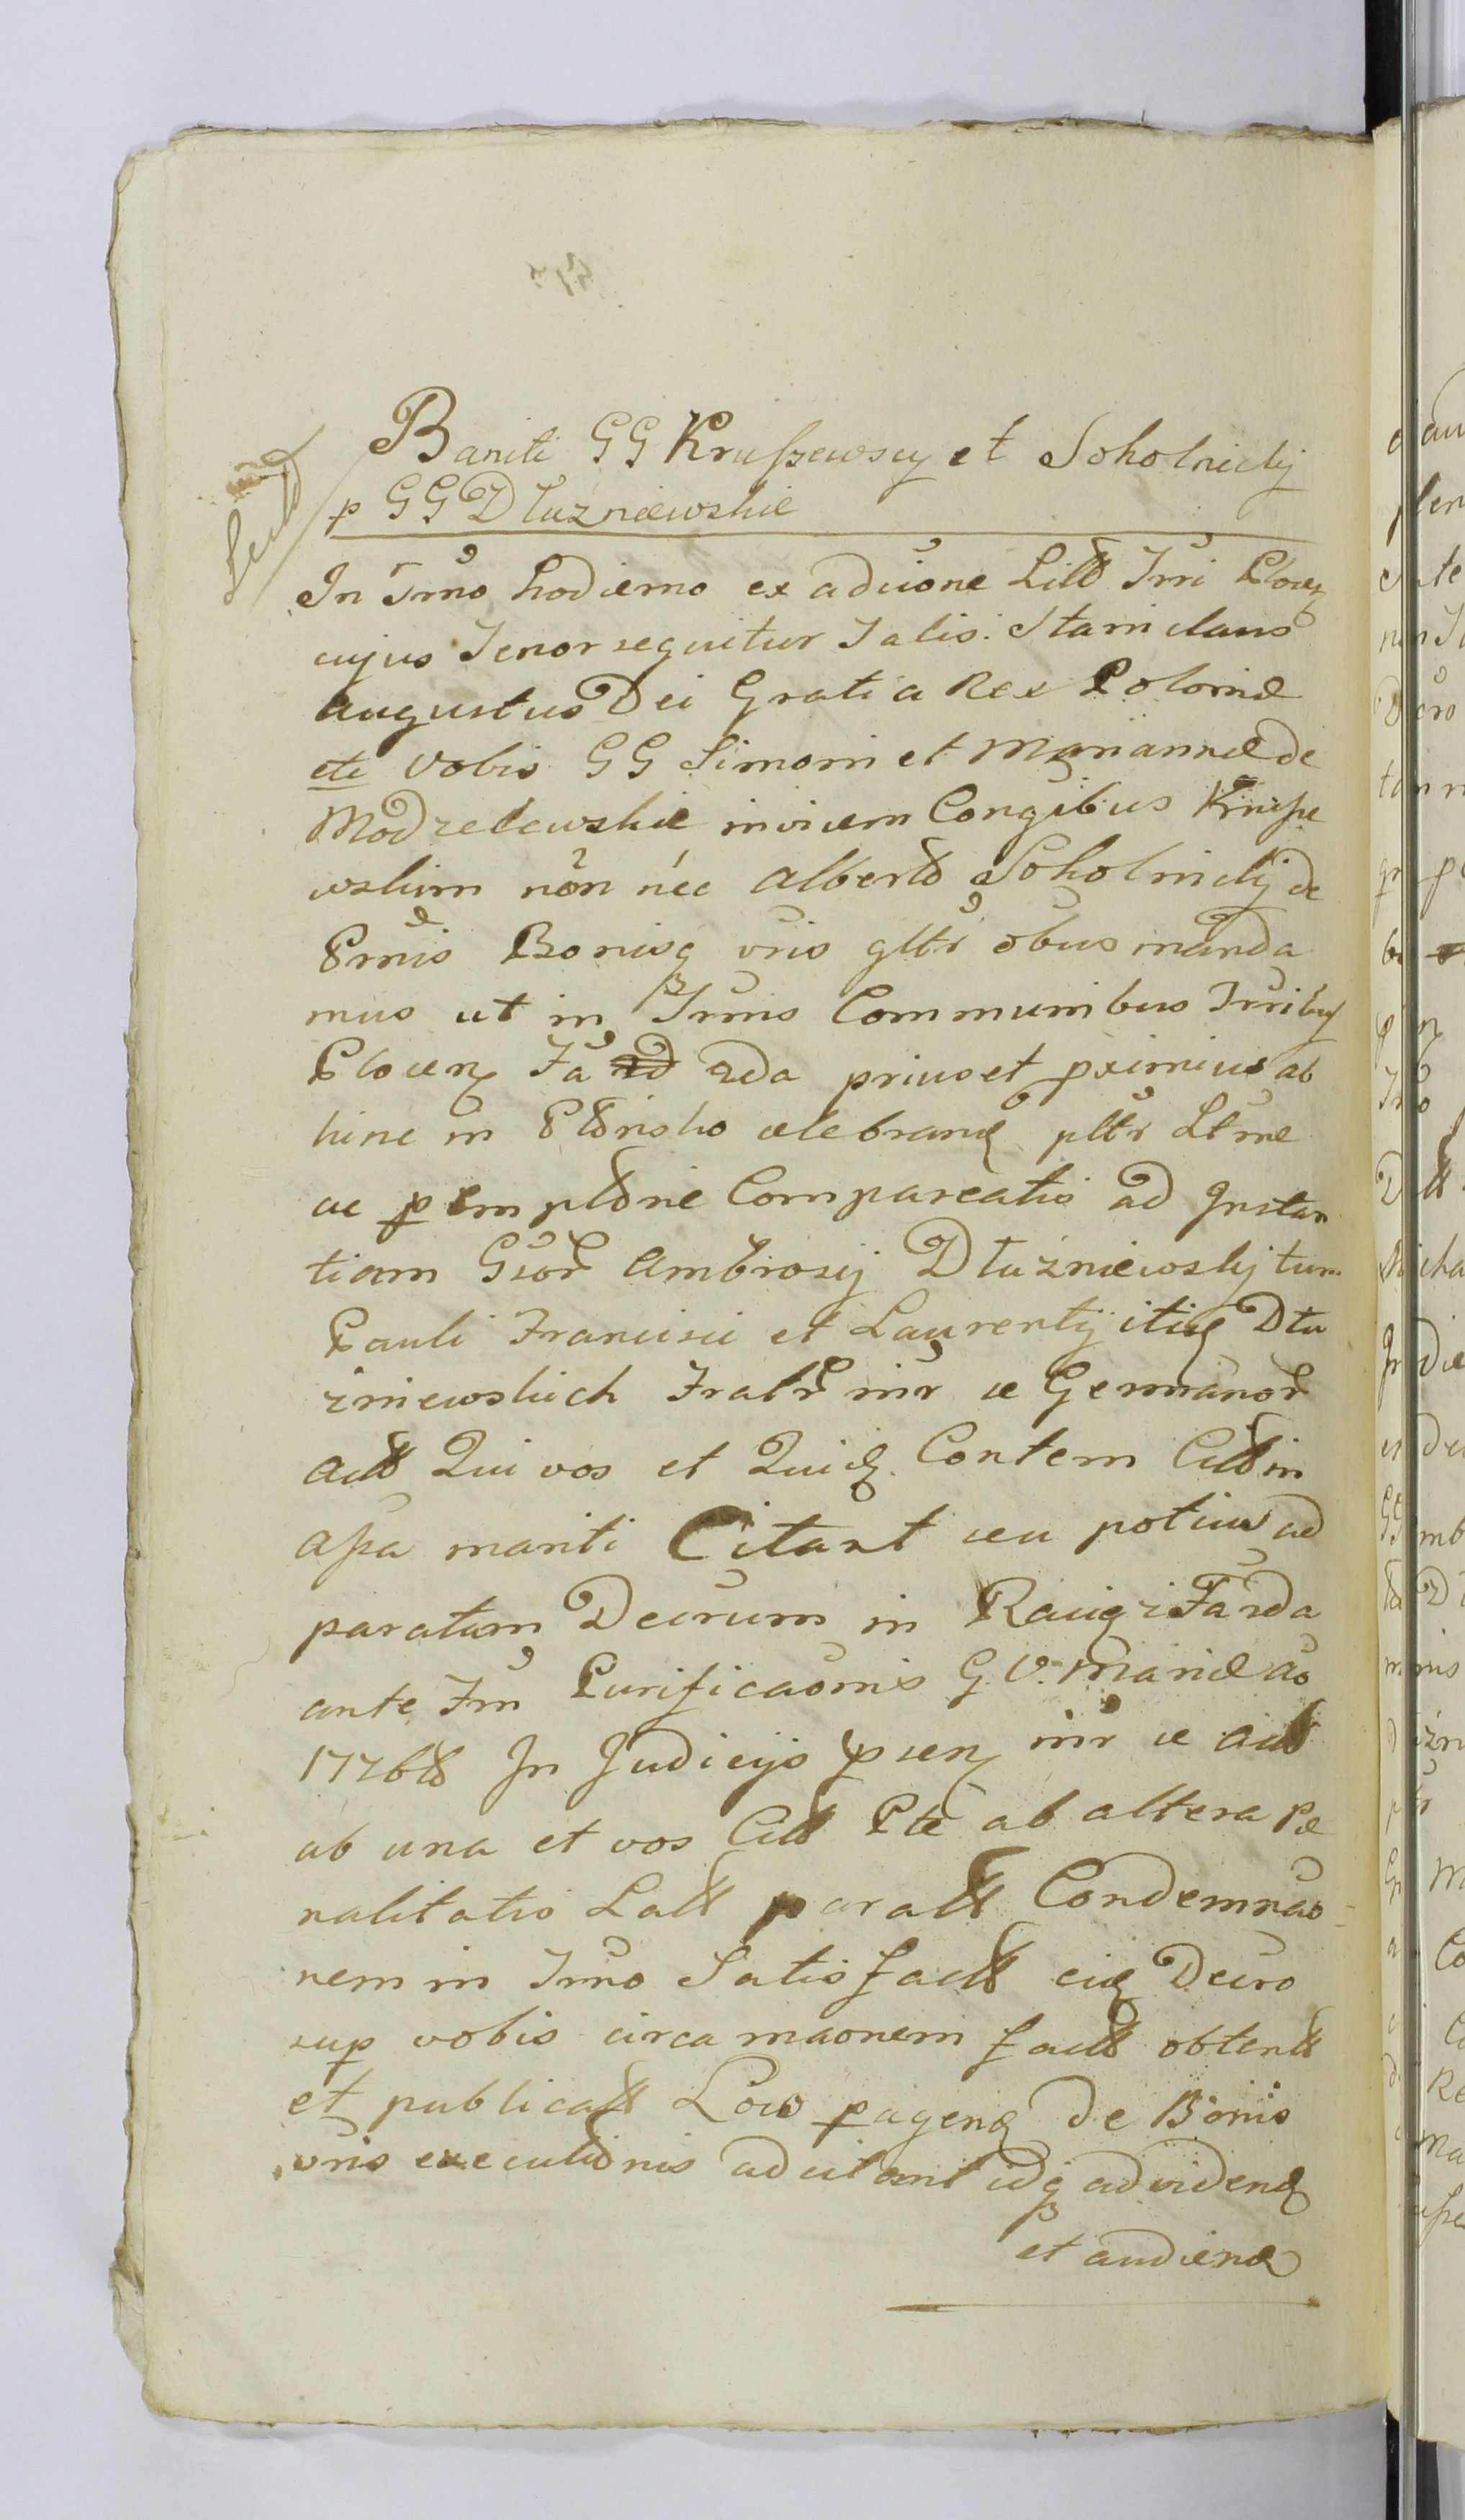 Baniti GG Kruszewscy et Sokolnicky
p GG Dłuzniewskie
In Trmo hodierno ex adcione Litt Trri Plocen
cujus Tenor sequitur Talis. Stanislaus
Augustus Dei Gratia Rex Poloniæ
etc Vobis GG Simoni et Mariannæ de
Modzelewskie invicem Conjgibus Krusze
wskim nön nec Alberto Sokolnicky de
Prnis Bonisq vris gltr öbus mända
mus ut in Trmis Communibus Trribus
Plocen Fa rda prius et pximius ab
hinc in celebrand pltr
ac pemptorie Compareatis ad Instan
tiam Gsor Ambrosij Dłuźniewsky tum
Pauli Francisci et Laurentij itid Dłu
źniewskich Fratr inr se Germanor
Actt Qui vos et Quid Contem Citt in
assa mariti Citant seu potius ad
paratam Decrum in Raciąż Fa rda
ante Frn Purificaonis G. V. Mariæ ao
1776tt In Judicijs psen inr se Actt
ab una et vos Citt Pte ab altera Pæ
nalitatis Latt paratt Condemnao
nem in Trmo Satisfactt eid Decro
sup vobis circa maonem factt obtentt
et publicatt Low pagend de Bonis
vris executionis adcitant idq ad videnđ
et audienđ